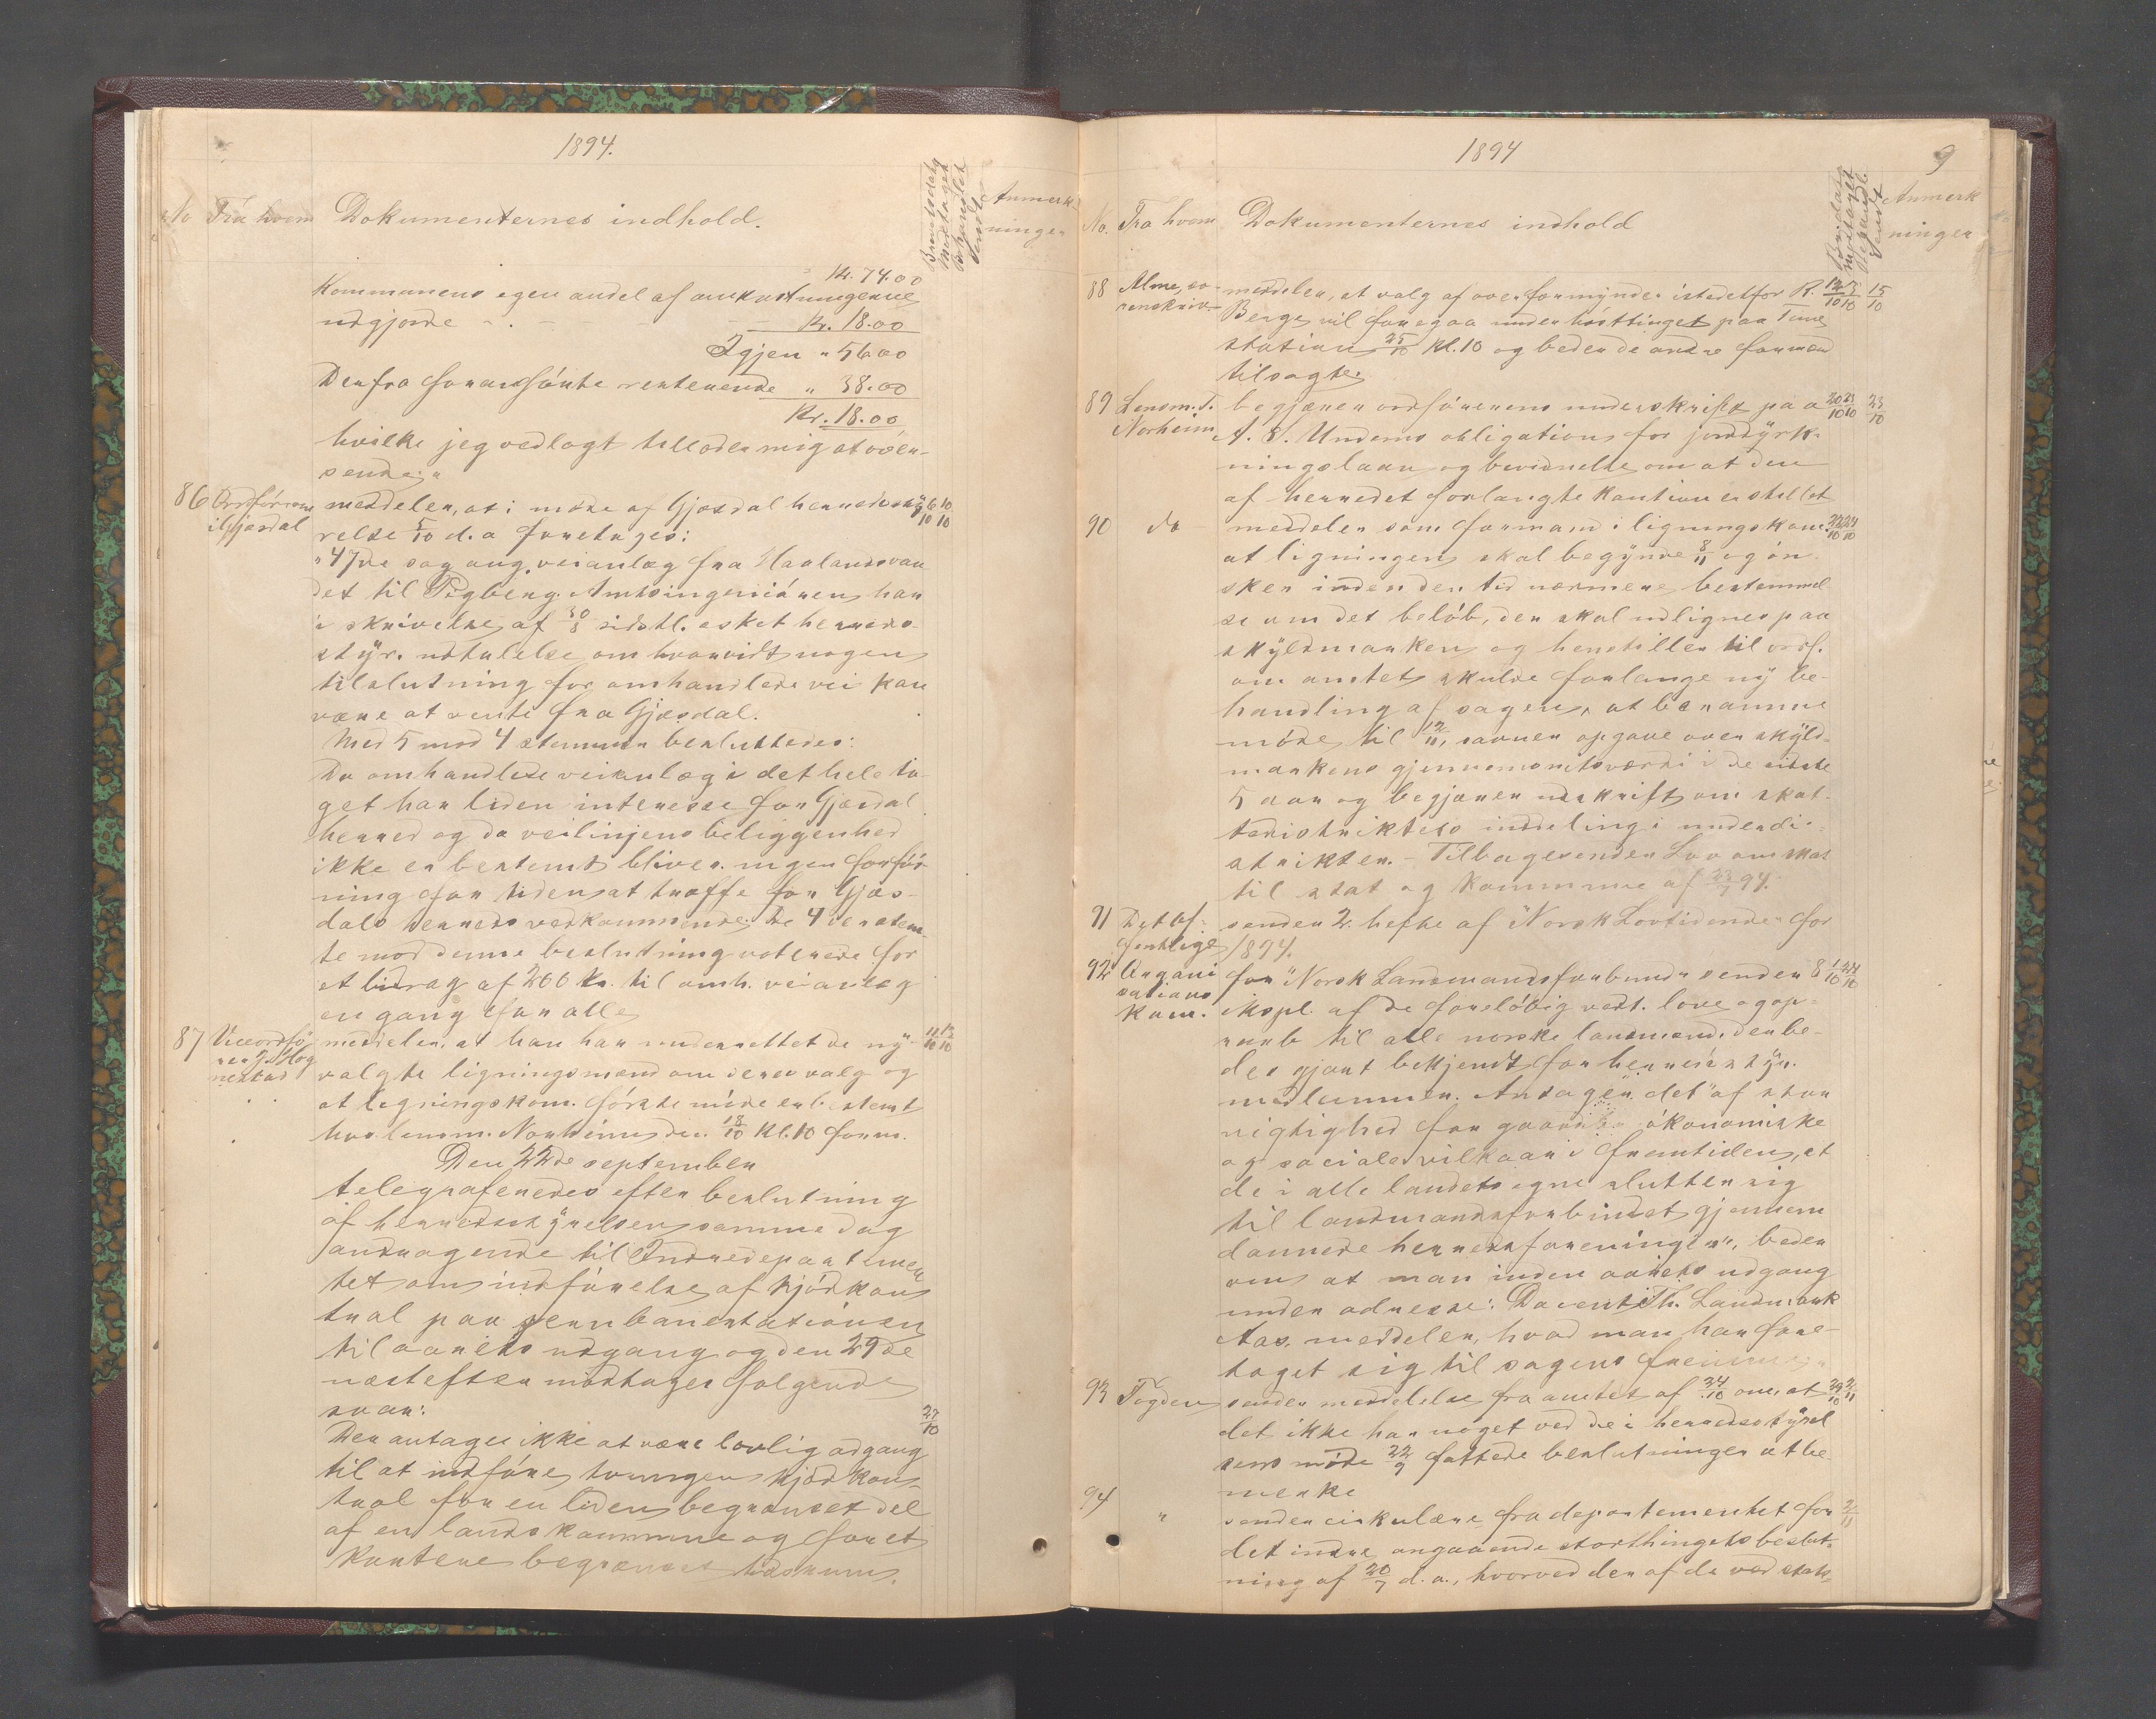 1894.
No Fra hvem Dokumenternes indhold.
Brevets dato
Modtaget
Behandlet
Sendt
Anmerk-
ninger
Kr. 74.00
Kommunens egen andel af omkostningerne
udgjorde - . - - - Kr. 18.00
Igjen " 56.00
Den fra forud førte resterende " 38.00
Kr. 18.00
hvilke jeg vedlagt tillader mig at over-
sende."
86 Ordføreren meddeler, at i møde af Gjæsdal herredssty- 6/10 10/10
i Gjæsdal relse 5/10 d.a foretages:
"47de sag ang. veianlæg fra Haalandsvan
det til Rægberg. Amtsingeniøren har
i skrivelse af 30/8 sidstl. æsket herreds-
styr. udtalelse om hvorvidt nogen
tilslutning for omhandlede vei kan
være at vente fra Gjæsdal.
Med 5 mod 4 stemmer besluttedes:
Da omhandlede veianlæg i det hele ta-
get har liden interesse for Gjæsdal
herred og da veilinjens beliggenhed
ikke er bestemt bliver ingen forføi-
ning for tiden at træffe for Gjæs-
dals herreds vedkommende. De 4 der stem-
te mod denne beslutning voterede for
et bidrag af 200 kr. til omh. veianlæg
en gang for alle
87 Viceordfø- meddeler, at han har underrettet de ny- 11/10 12/10
rer J. Hog
nestad valgte ligningsmænd om deres valg og
at ligningskom. første møde er bestemt
hos lensm. Norheim den 18/10 kl. 10 form.
Den 22de september
telegraferedes efter beslutning
af herredsstyrelsen samme dag
andragende til Indredepartemen
tet om indførelse af kjødkon
trol paa jernbanestationen
til aarets udgang og den 29de
næstefter modtages følgende
svar: 27/10
Der antages ikke at være lovlig adgang
til at indføre tvungen kjødkon-
trol for en liden begrænset del
af en landskommune og for et
kortere begrænset tidsrum.
1894
9
No. Fra hvem Dokumenternes indhold
Brev. dato
Modtaget
Behandl.
Sendt
Anmerk
ninger
88 Alme, so- meddeler, at valg af overformynder istedetfor R. 12/10 13/10 15/10
renskriv- Berge vil foregaa under høsttinget paa Time
station 25/10 kl. 10 og beder de andre formænd
tilsagte.
89 Lensm. T. begjærer ordførerens underskrift paa 20/10 23/10 23/10
Norheim A. S. Undems obligation for jorddyrk-
ningslaan og bevidnelse om at den
af herredet forlangte kaution er stillet
90 do meddeler som formand i ligningskom. 22/10 24/10
at ligningen skal begynde 8/11 og øn-
sker inden den tid nærmere bestemmel
se om det beløb, der skal udlignes paa
skyldmarken og henstiller til ordf.
om amtet skulde forlange ny be-
handling af sagen, at beramme
møde til 12/11, savner opgave over skyld-
markens gjennemsnitsværdi i de sidste
5 aar og begjærer udskrift om skat-
tedistriktets inddeling i underdi-
strikter. - Tilbagesender Lov om skat
til stat og kommune af 23/7 94.
91 Det of- sender 2. hefte af "Norsk Lovtidende" for
fentlige 1894.
92 Organi for "Norsk Landmandsforbund" sender 8 1/10 24/10
sations
kom. ekspl. af de foreløbig vedt. love og op-
raab til alle norske landmænd, der be-
des gjort bekjendt for herredsstyr.
medlemmer. Antager det "af stor
vigtighed for økonomiske
og sociale vilkaar i fremtiden, at
de i alle landets egne slutter sig
til landmandsforbundet gjennem
dannede herredsforeninger", beder
om at man inden aarets udgang
under adresse: Docent Th. Landmark
Aas, meddeler, hvad man har fore-
taget sig til sagens fremme.
93 Fogden sender meddelelse fra amtet af 24/10 om, at 29/10 2/11
det ikke har noget ved de i herredsstyrel
sens møde 22/9 fattede beslutninger at be
merke
94 " sender cirkulære fra departementet for 2/11
det indre angaaende storthingets beslut-
ning af 20/7 d.a., hvorved der af de ved stats-